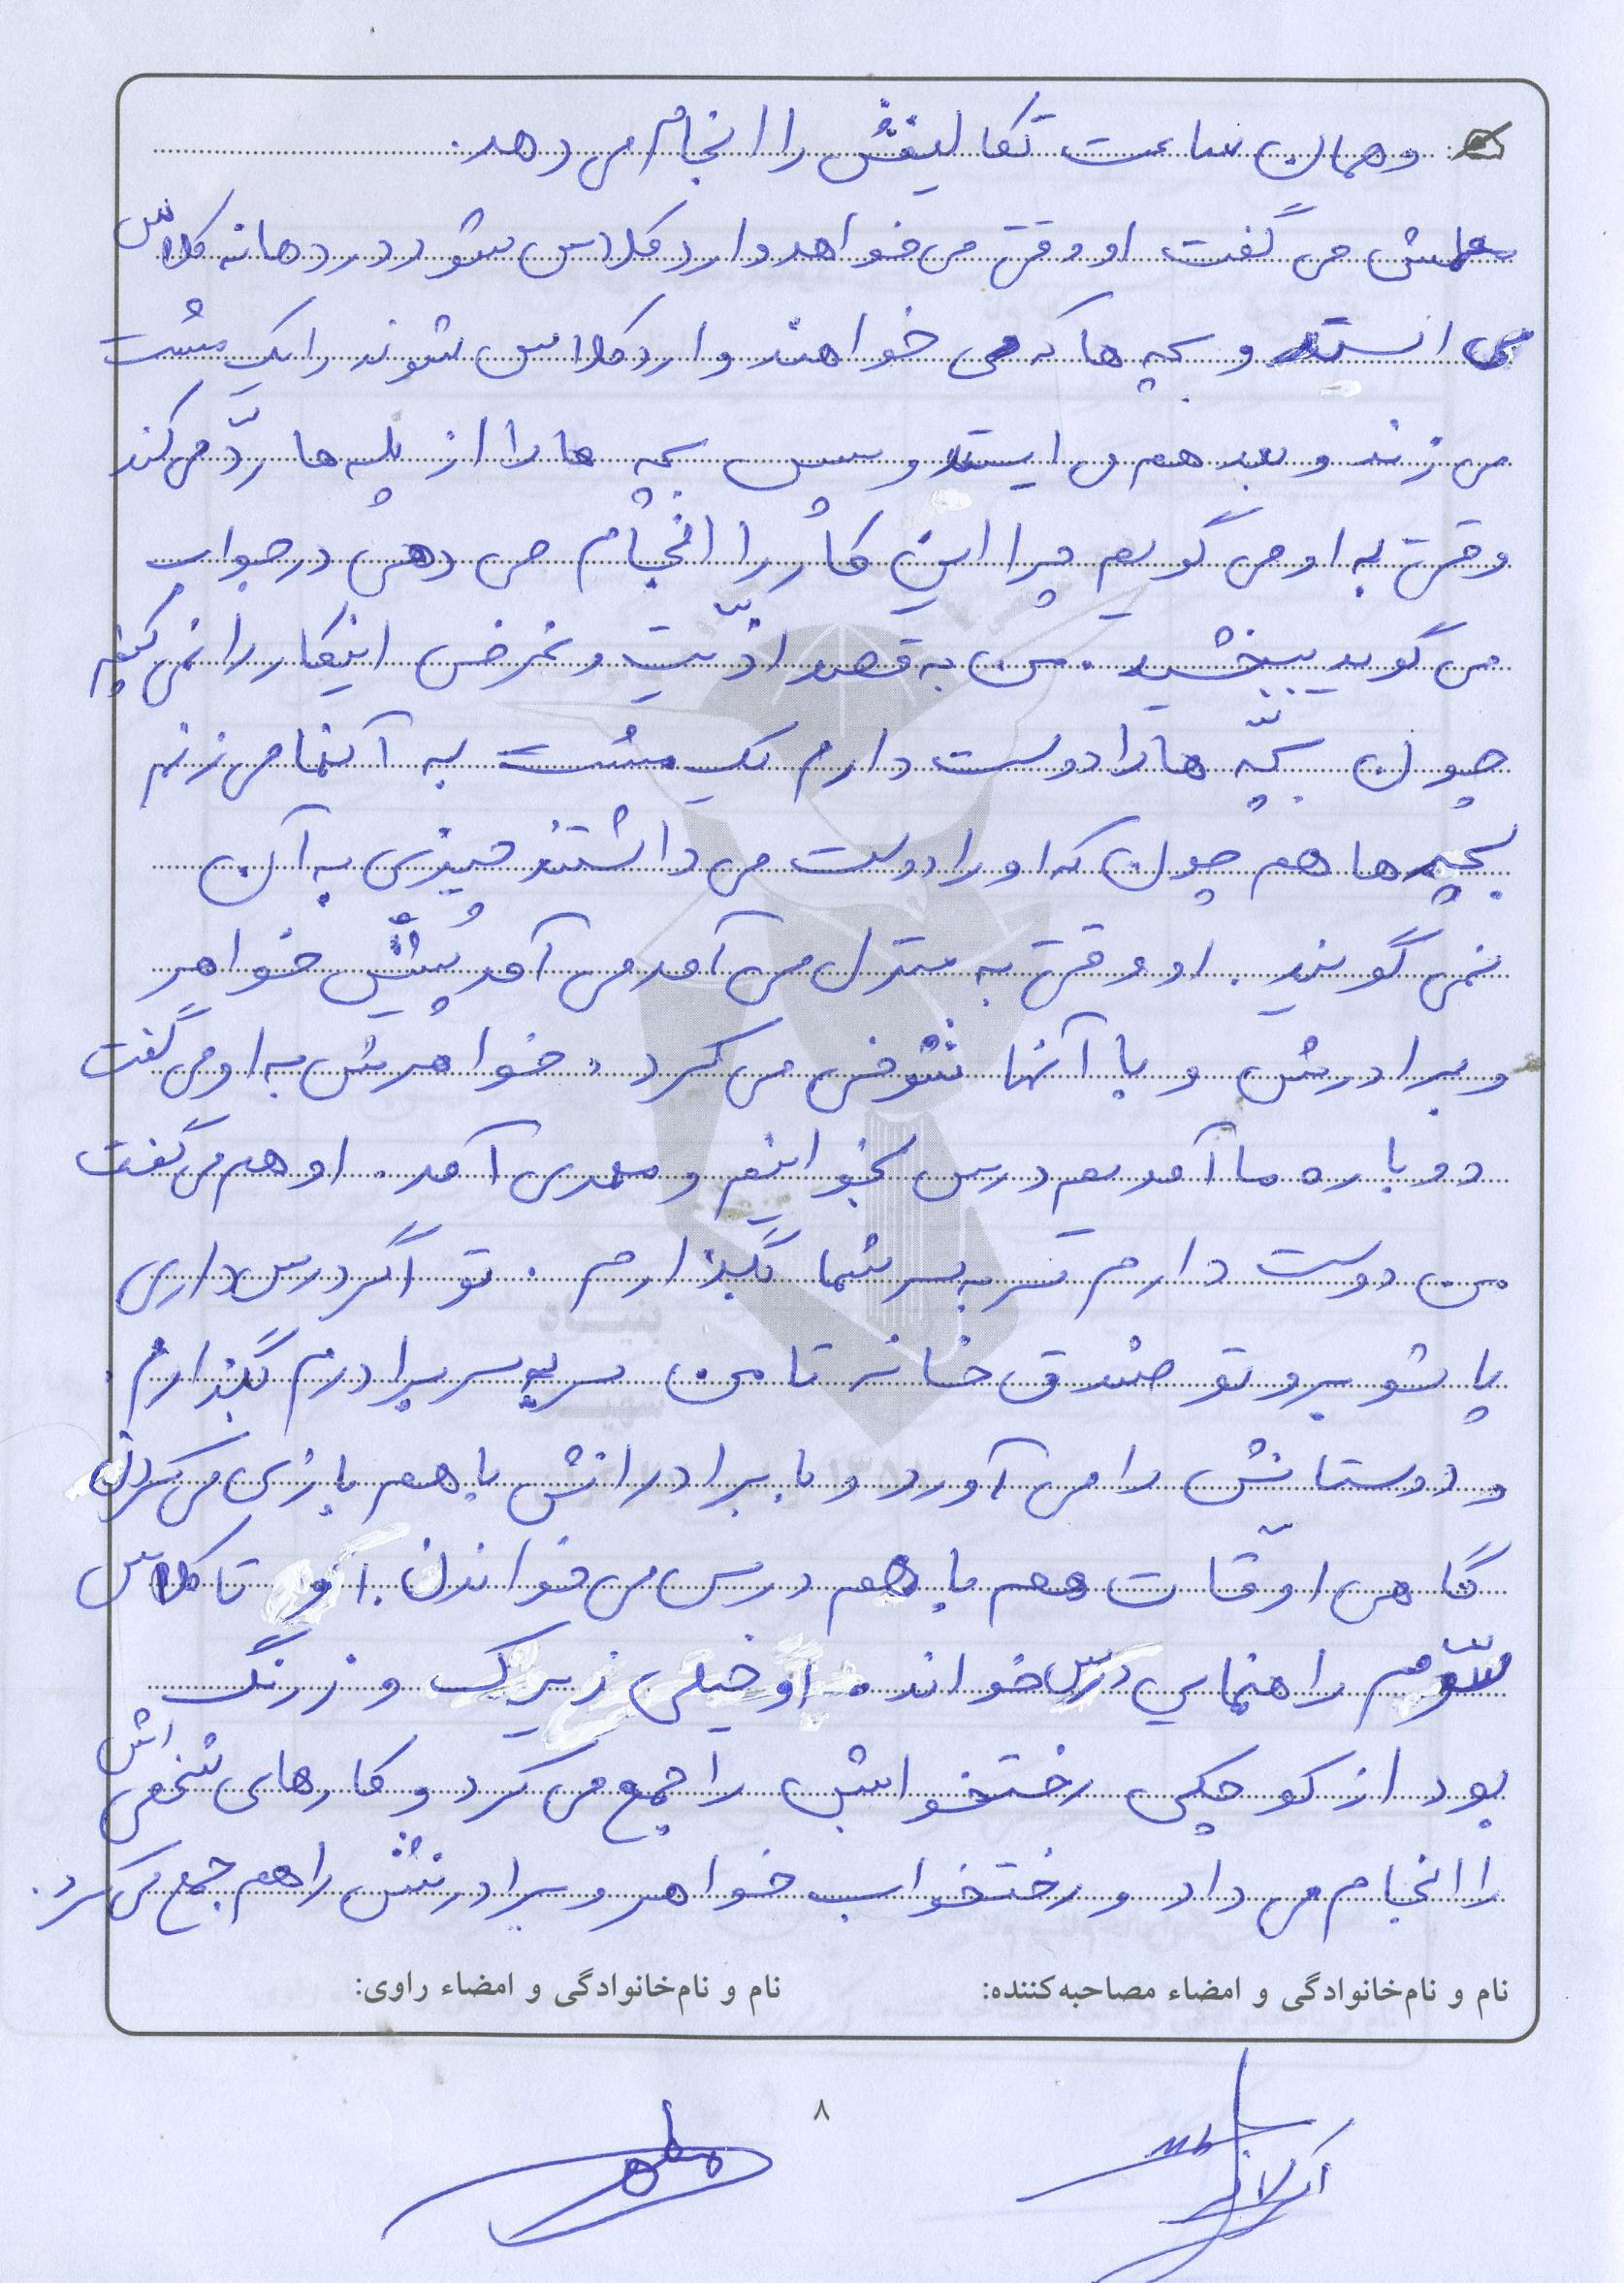 و همان ساعت تکالیفش را انجام می دهد.
معلمش می گفت او وقتی می خواهد وارد کلاس شود در دهانه کلاس
می ایستد و بچه ها که می خواهند وارد کلاس شوند را یک مشت
می زند و بعد هم می ایستد و سپس بچه ها را از پله ها ردّ می کند
وقتی به او می گویم چرا این کار را انجام می دهی در جواب
می گوید ببخشید. من به قصد اذیّت و غرض اینکار را نمی کنم
چون بچّه ها را دوست دارم یک مشت به آنها می زنم
بچه ها هم چون که او را دوست می داشتند چیزی به آن
نمی گویند. او وقتی به منزل می آمد می آمد پُیش خواهر
و برادرش و با آنها شوخی می کرد. خواهرش به او می گفت
دوباره ما آمدیم درس بخوانیم و مهدی آمد. او هم می گفت
من دوست دارم سر به سر شما بگذارم. تو اگر درس داری
پاشو برو تو صندوق خانه تا من سر به سر برادرم بگذارم.
و دوستانش را می آورد و با برادرانش با هم بازی می کردن
گاهی اوقّات هم با هم درس می خواندن. او تا کلاس
سوّم راهنمایی درس خواند. او خیلی زیرک و زرنگ
بود از کوچکی رختخوابش را جمع می کرد و کارهای شخصی اش
را انجام می داد و رختخواب خواهر و برادرش را هم جمع می کرد.
نام و نام‌خانوادگی و امضاء مصاحبه‌کننده: نام و نام‌خانوادگی و امضاء راوی:
۸